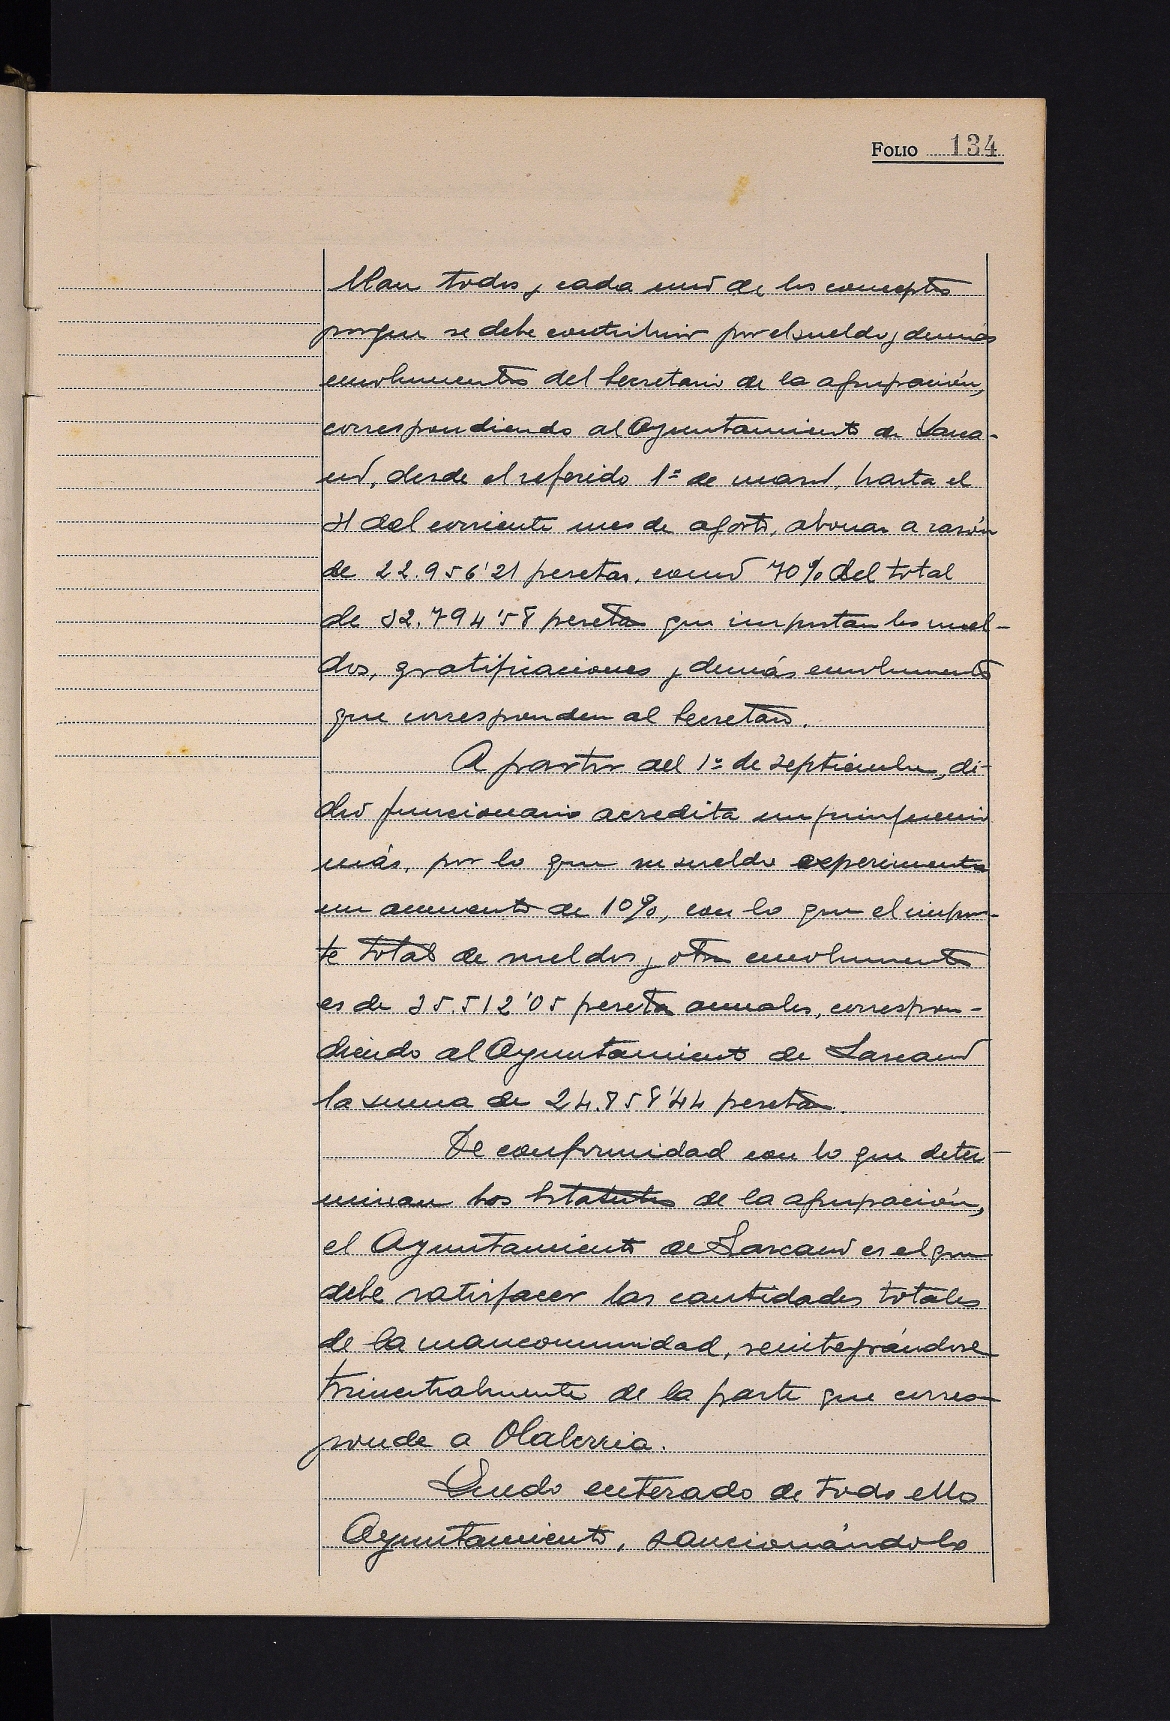 FOLIO 134
llan todos y cada uno de los conceptos
porque se debe contribuir por el sueldo y demás
emolumentos del Secretario de la agrupación,
correspondiendo al Ayuntamiento de Lazca-
no, desde el referido 1º de marzo, hasta el
31 del corriente mes de agosto, abonar a razón
de 22.956'21 pesetas, como 70% del total
de 32.794'58 pesetas que importan los suel-
dos, gratificaciones y demás emolumentos
que corresponden al Secretario.
A partir del 1º de septiembre, di-
cho funcionario acredita un quinquenio
más, por lo que su sueldo experimenta
un aumento de 10%, con lo que el impor-
te total de sueldos y otros emolumentos
es de 35.512'05 pesetas anuales, correspon-
diendo al Ayuntamiento de Lazcano
la suma de 24.858'44 pesetas.
De conformidad con lo que deter-
minan los Estatutos de la agrupación,
el Ayuntamiento de Lazcano es el que
debe satisfacer las cantidades totales
de la mancomunidad, reintegrándose
trimestralmente de la parte que corres-
ponde a Olaberria.
Quedo enterado de todo ello
Ayuntamiento, sancionándolo